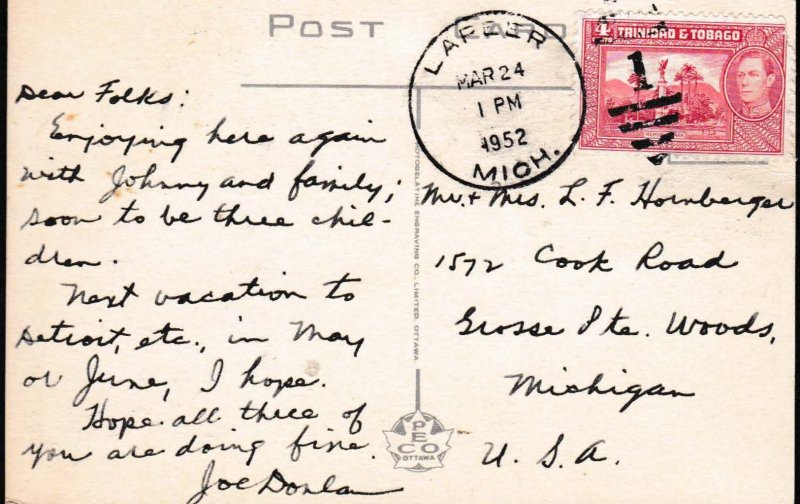 POST CARD
LAPEER
MAR 24
1 PM
1952
MICH.
4
CTS
TRINIDAD & TOBAGO
1
Dear Folks:
Enjoying here again
with Johnny and family;
soon to be three chil-
dren.
Next vacation to
Detroit, etc., in May
or June, I hope.
Hope all three of
you are doing fine.
Joe Donlan
PHOTOGELATINE ENGRAVING CO., LIMITED, OTTAWA.
PECO
OTTAWA
Mr. + Mrs. L. F. Hornberger
1572 Cook Road
Grosse Pte. Woods,
Michigan
U. S. A.